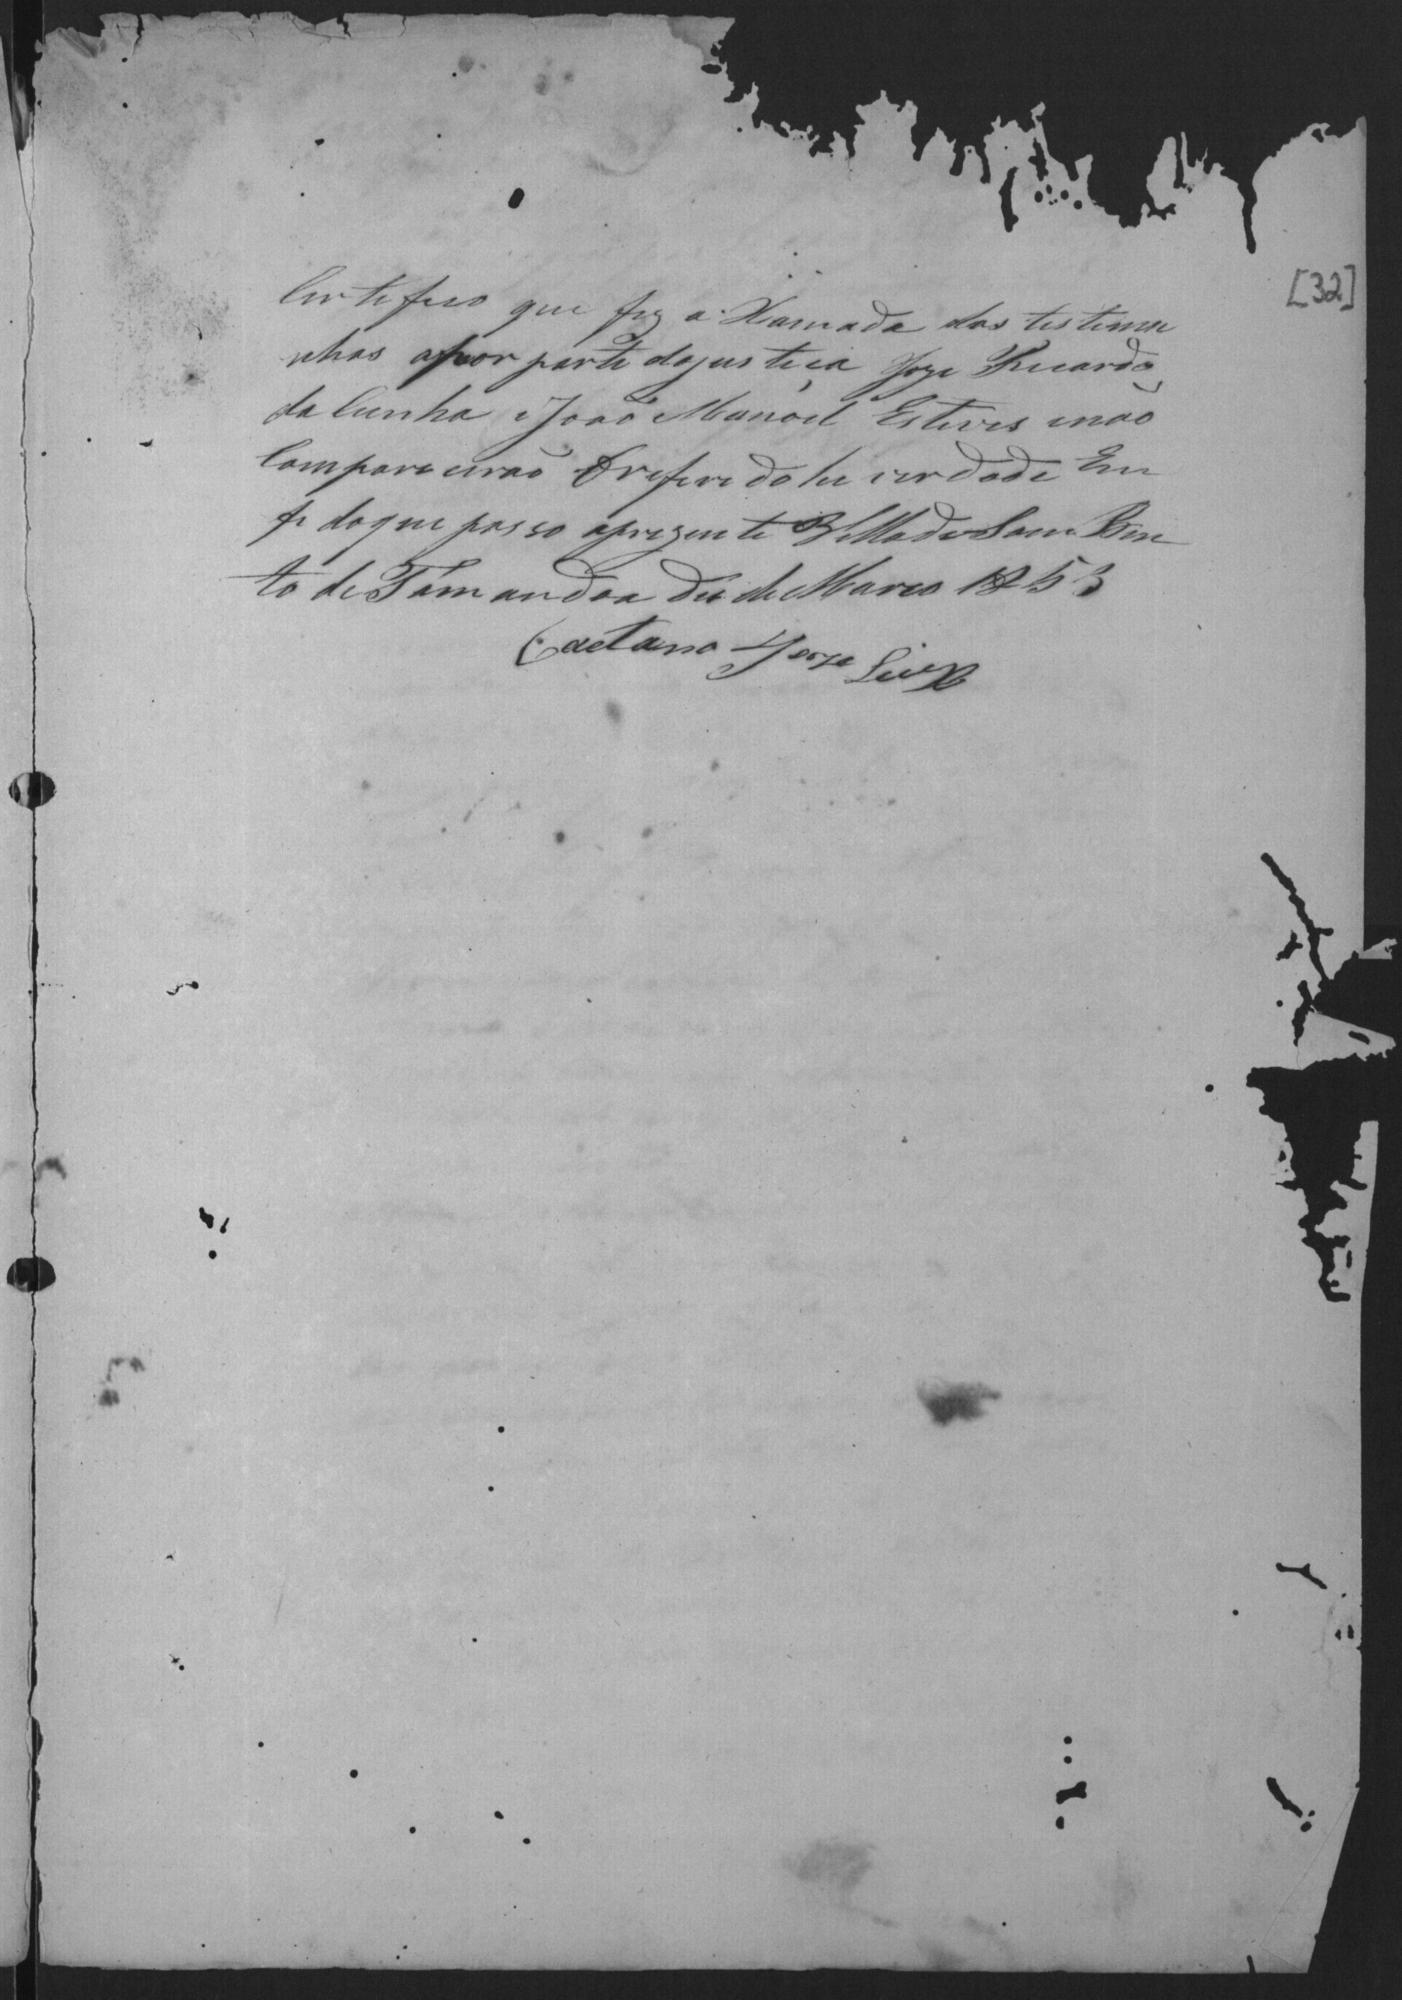 [32]
Certefico que fiz a Xamada das testemu
nhas por parte dajustiça Joze Ricardo
da Cunha e João Manoel Esteves enão
Comparecerão Oreferido he verdade Em
fe doque passo aprezente Villa de Sam Ben
to de Tamandoa de Março 1853
Caetano Jorze